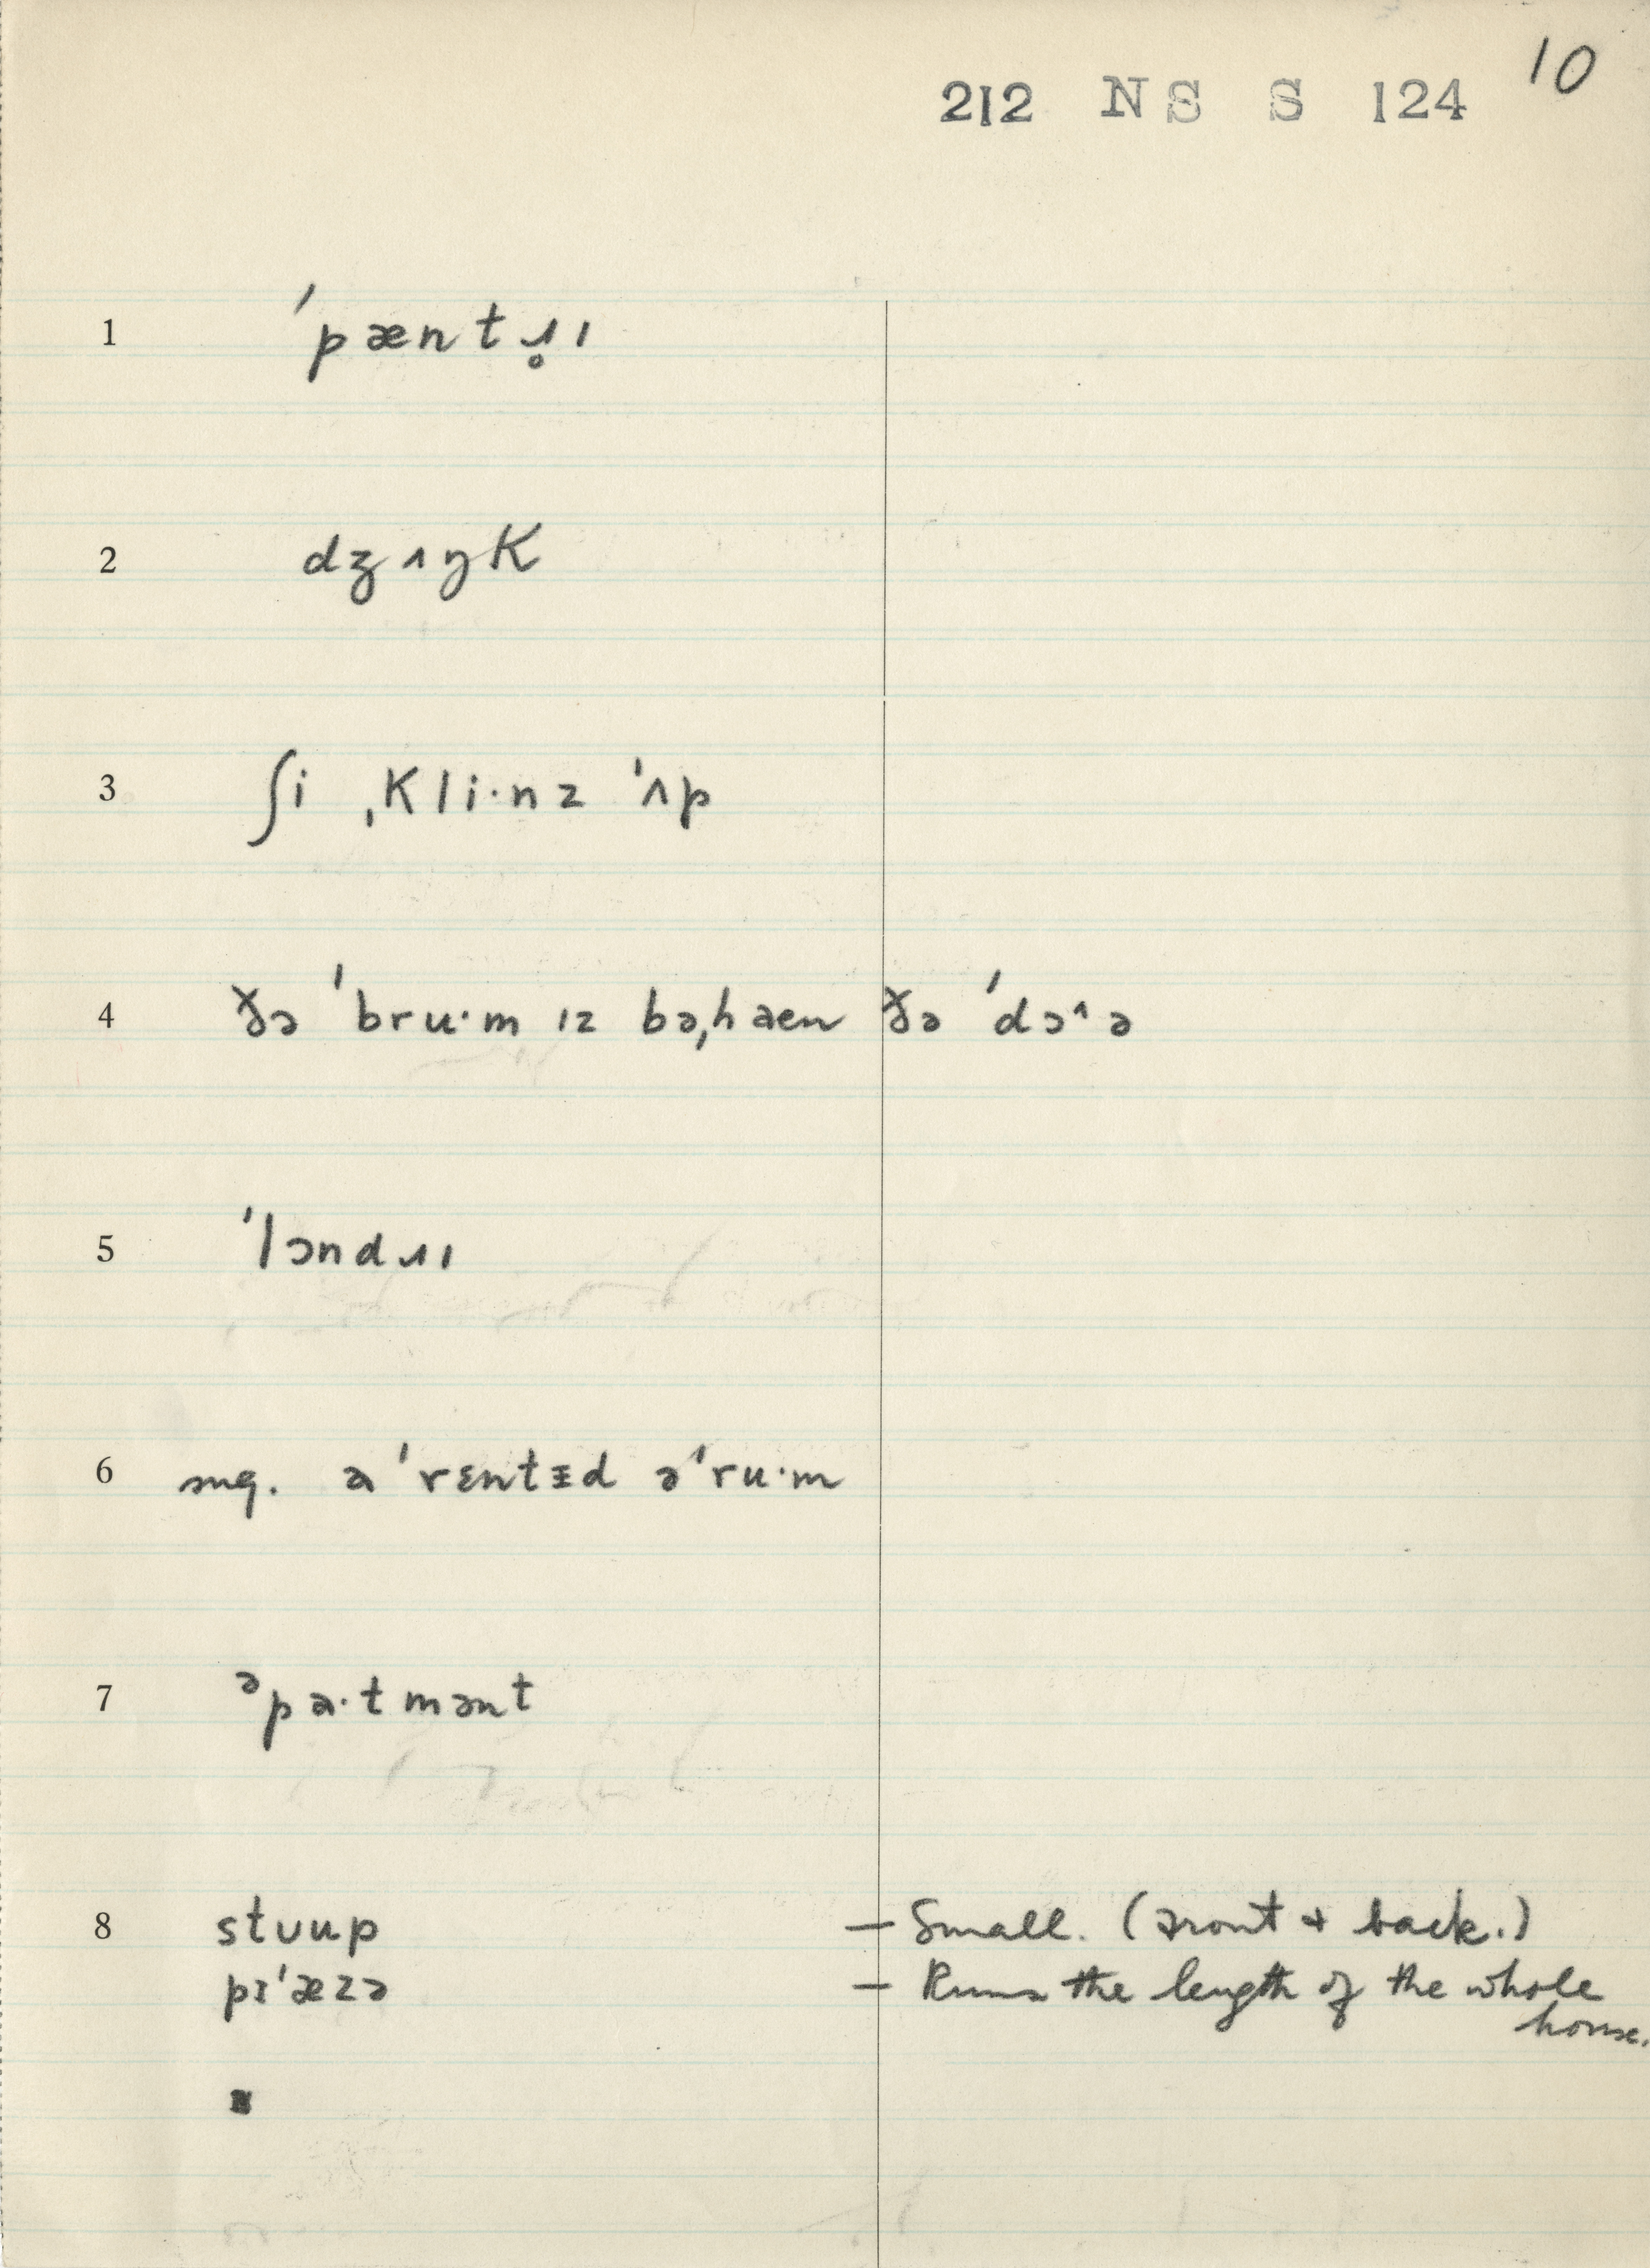 10
212 NS S 124
1 ˈpæntɹ̥ɪ
2 dʒʌŋk
3 ʃi ˌkli·nz ˈʌp
4 ðə ˈbru·m ɪz bəˌhaen ðə ˈdɔ^ə
5 ˈlɔndɹɪ
6 sug. a ˈrɛntɪd əˈru·m
7 əpa·tmənt
8 stuup — Small. (Front & back.)
pɪˈæzə — Runs the length of the whole
house.